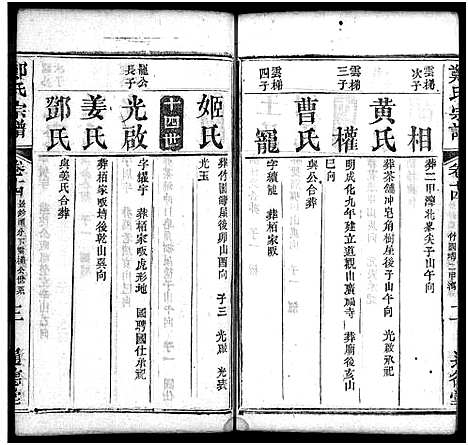 鄭氏宗譜
卷十四
雲梯次子
相
葬二甲灣北峯尖子山午向
黃氏
葬茶舖冲皂角樹屋後子山午向 光啟承祀
雲梯三子
權
明成化九年建立道觀山廣福寺 葬廟後亥山
巳
曹氏
與公合葬
雲梯四子
寵
字績龍 葬栢家畈
姬氏
葬竹園塆屋後卯山酉向 子三 光啟 光裁
光玉
十四世
龍公長子
光啟
字耀宇 葬栢家畈虎形地 國聘國仕承祀
姜氏
葬栢家畈塆後乾山巽向
鄧氏
與姜氏合葬
鄭氏宗譜
卷十四
三